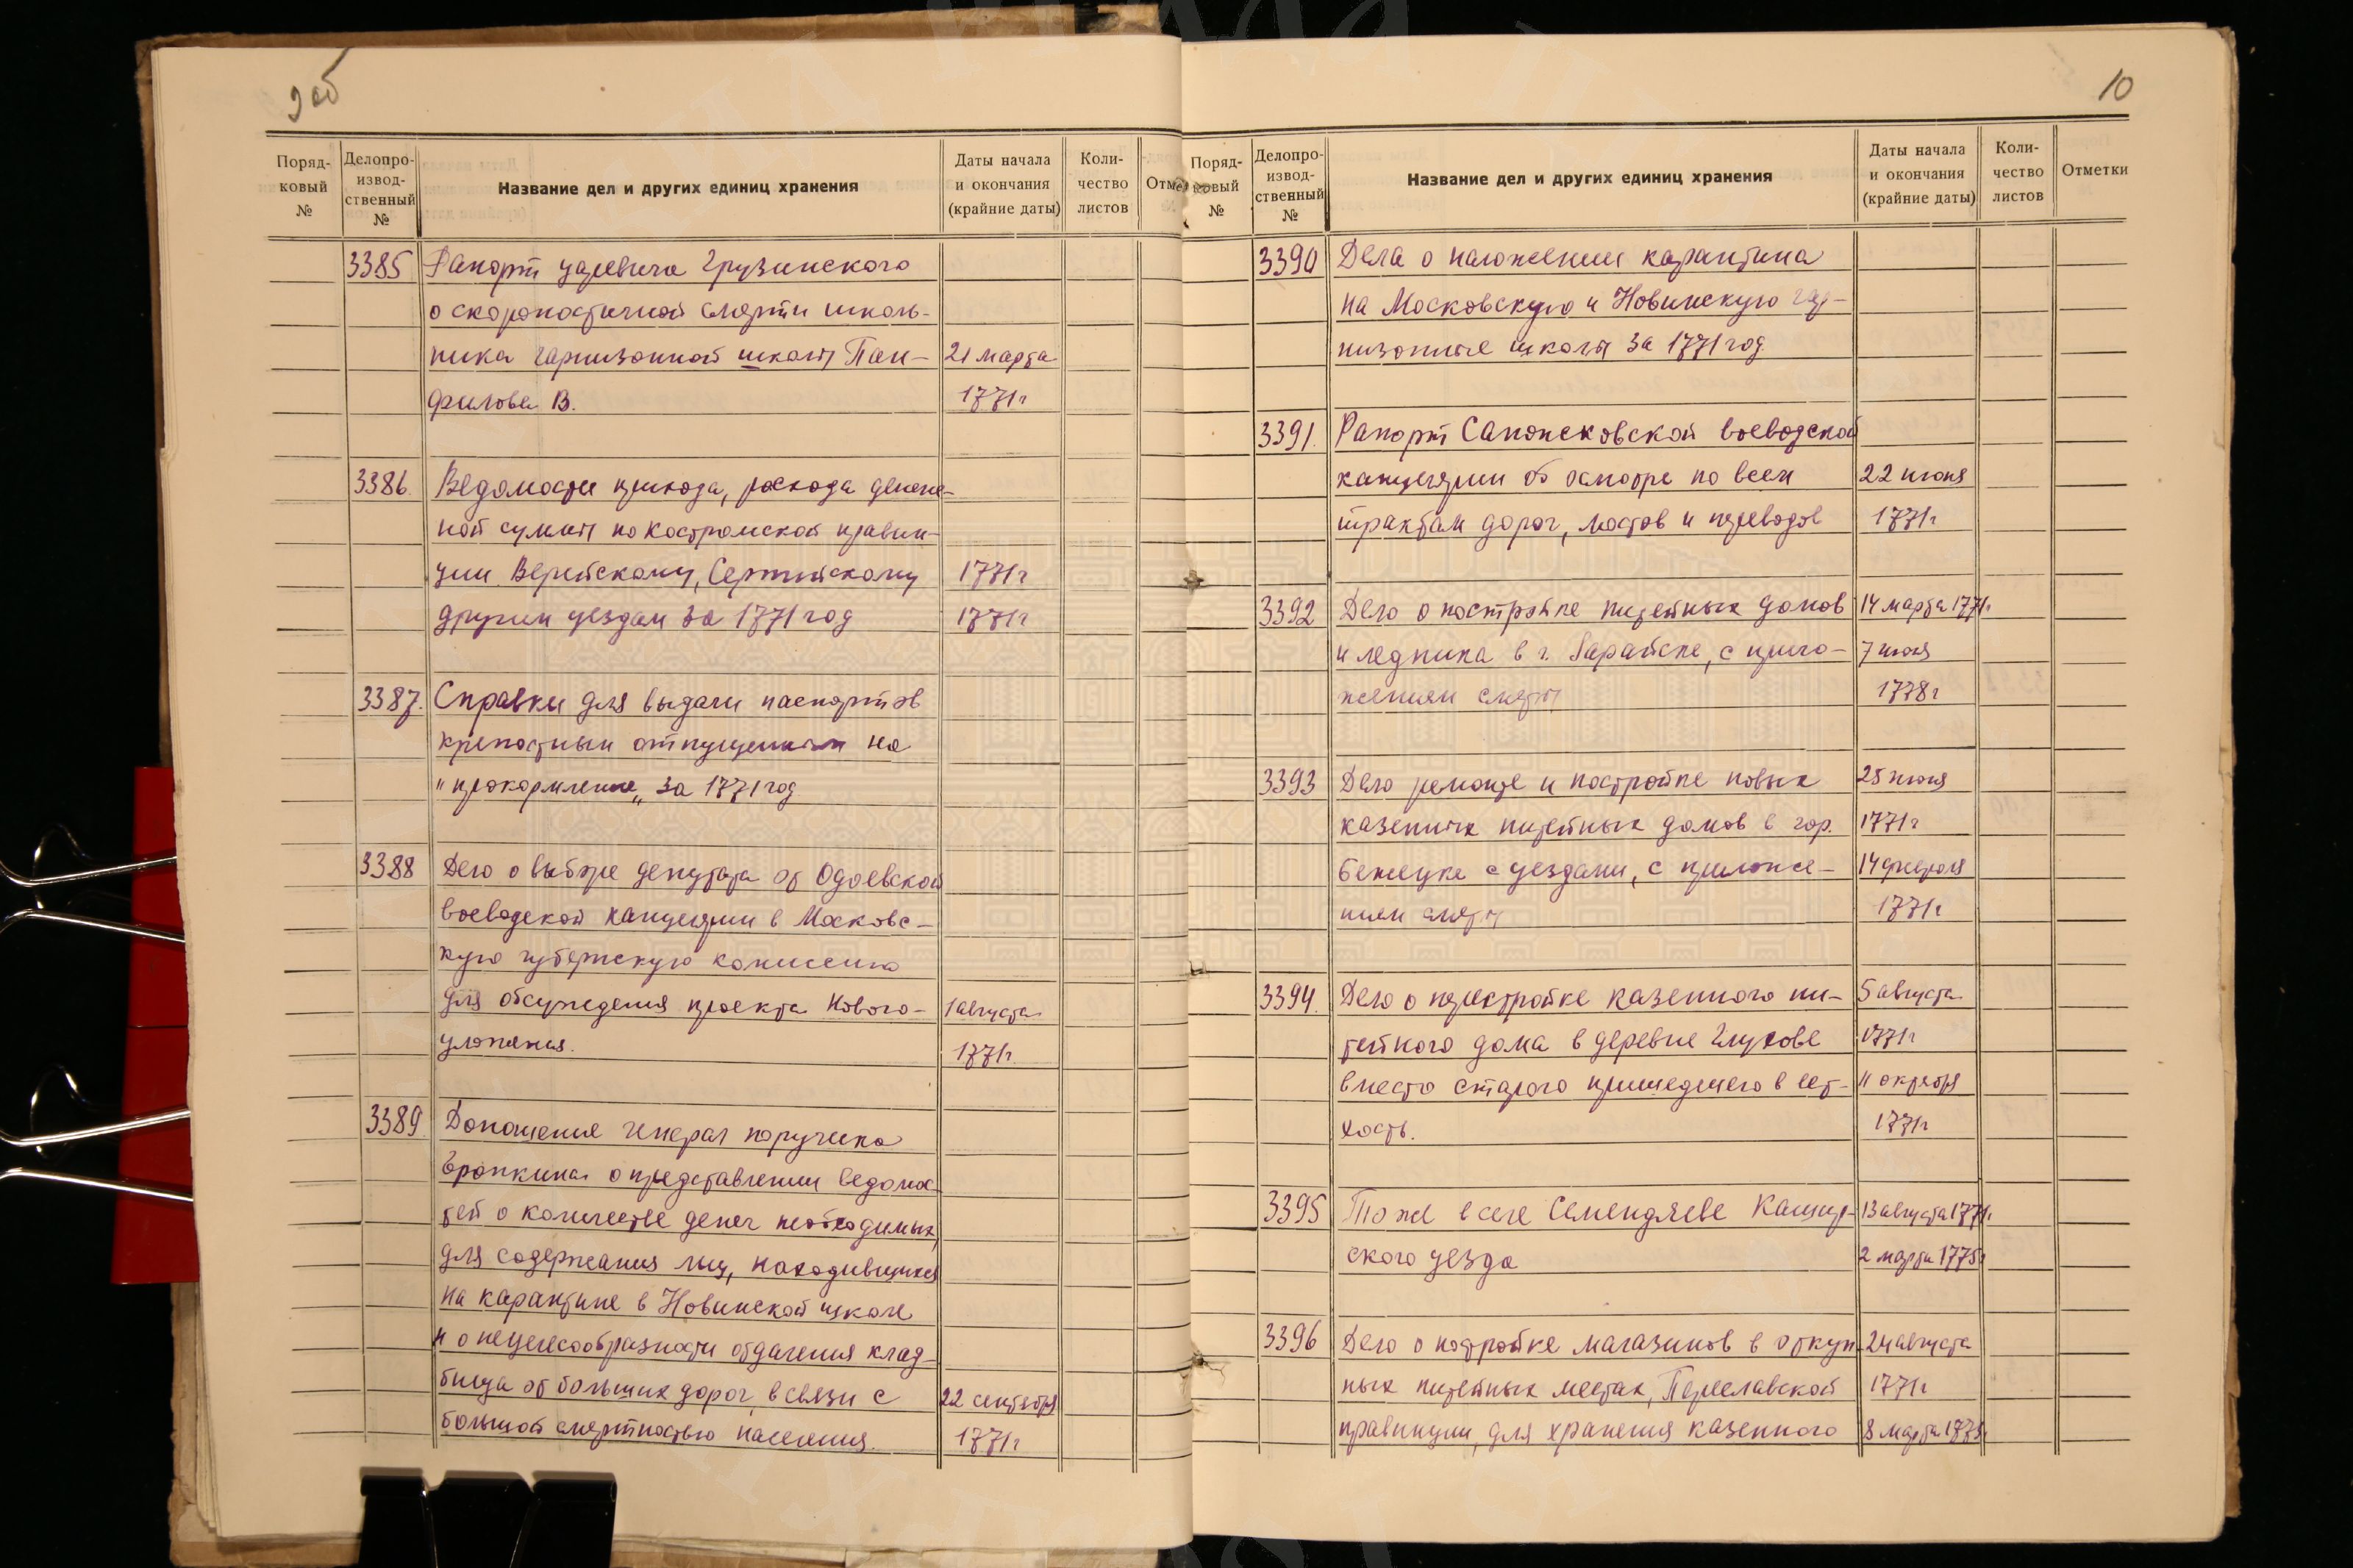 9об
Поряд-
ковый
№
Делопро-
извод-
ственный
№
Название дел и других единиц хранения
Даты начала
и окончания
(крайние даты)
Коли-
чество
листов
Отме
3385 Рапорт царевича Грузинского
о скоропостижной смерти школь-
ника гарнизонной школы Пан- 21 марта
филова В. 1771г
3386. Ведомости прихода, расхода денеж-
ной суммы по Костромской правин-
ции Верейскому, Серпейскому 1771г
другим уездам за 1771 год 1771г
3387. Справки для выдачи паспортов
крепостным отпущенным на
"прокормление" за 1771 год
3388 Дело о выборе депутата от Одоевской
воеводской канцелярии в Московс-
кую губернскую комиссию
для обсуждения проекта Нового- 1 августа
уложения. 1771г.
3389 Доношения генерал поручика
Еропкина о представлении ведомос-
тей о количестве денег необходимых
для содержания лиц, находившихся
на карантине в Новинской школе
и о нецелесообразности отдаления клад-
бища от больших дорог, в связи с 22 сентября
большой смертностью населения. 1771г
10
Поряд-
ковый
№
Делопро-
извод-
ственный
№
Название дел и других единиц хранения
Даты начала
и окончания
(крайние даты)
Коли-
чество
листов
Отметки
3390 Дела о наложении карантина
на Московскую и Новинскую гар-
низонные школы за 1771 год
3391. Рапорт Сапожковской воеводской
канцелярии об осмотре по всем 22 июня
трактам дорог, мостов и переводов 1771г
3392 Дело о постройке питейных домов 14 марта 1771г
и ледника в г. Зарайске, с прило- 7 июля
жением сметы 1778г
3393 Дело ремонте и постройке новых 25 июня
казенных питейных домов в гор. 1771г
Бежецке с уездами, с приложе- 14 февраля
нием сметы 1771г
3394. Дело о перестройке казенного пи- 5 августа
тейного дома в деревне Глухове 1771г
вместо старого пришедшего в вет- 11 октября
хость. 1771г
3395 То же в селе Семендяеве Кашир- 13 августа 1771г
ского уезда 2 марта 1775г
3396 Дело о постройке магазинов в откуп- 24 августа
ных питейных местах, Переславской 1771г
правинции, для хранения казенного 8 марта